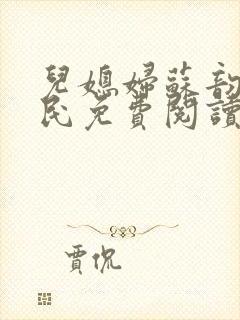 兒媳婦蘇韵
民免費閱讀
賈侃